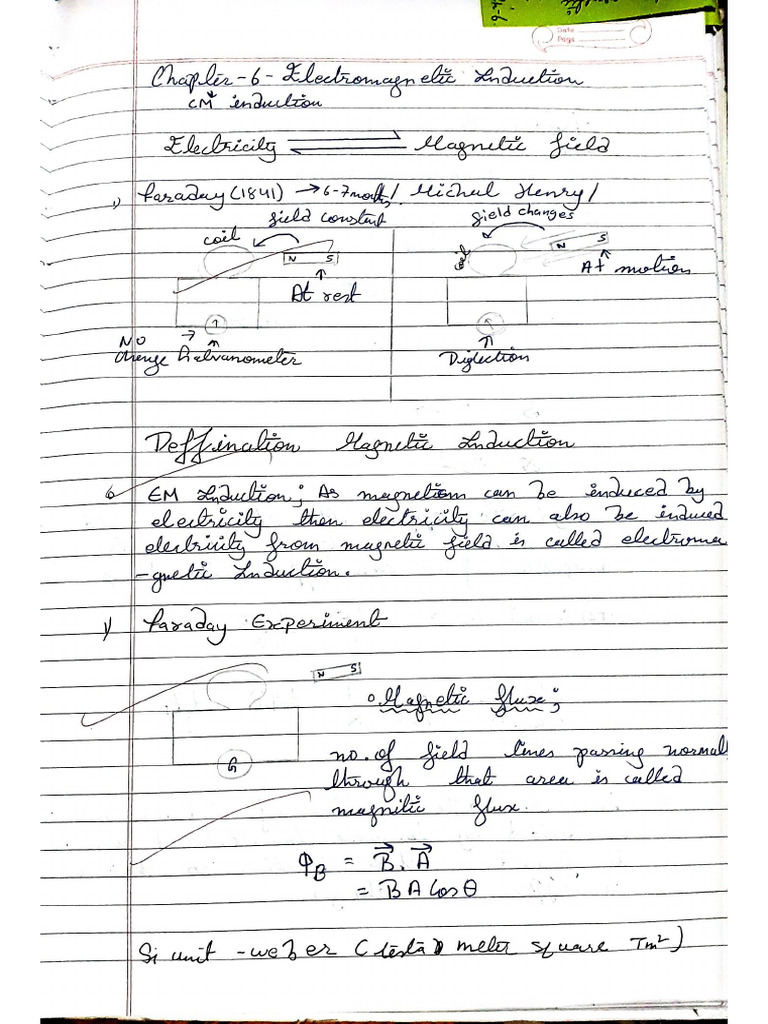 Date
Page
Chapter-6-Electromagnetic Induction
EM induction
Electricity ⇌ Magnetic field
1) Faraday (1841) → 6-7 / Michal Henry /
field constant
field changes
coil
N S
coil
N S
At rest
At motion
NO change
Galvanometer
Diglection
Deffination Magnetic Induction
EM Induction; As magnetism can be induced by
electricity then electricity can also be induced
electrivity from magnetic field is called electroma
-gnetic Induction.
1) Faraday Experiment
N S
Magnetic flux;
G
no. of field lines passing normal
through that area is called
magnitic flux.
ΦB = B⃗ . A⃗
= BA Cosθ
Si unit - weber (tesla meter square Tm²)